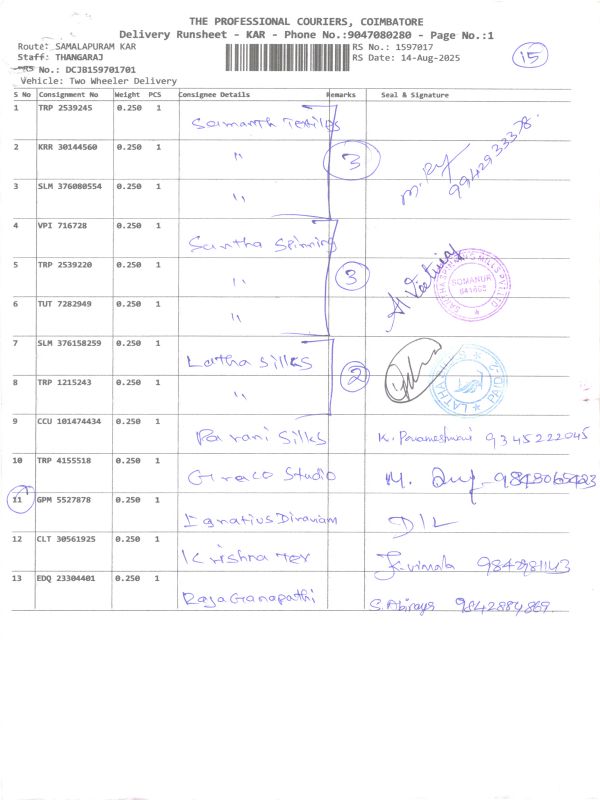 THE PROFESSIONAL COURIERS, COIMBATORE
Delivery Runsheet - KAR - Phone No.:9047080280 - Page No.:1
Route: SAMALAPURAM KAR RS No.: 1597017 15
Staff: THANGARAJ RS Date: 14-Aug-2025
PRS No.: DCJB159701701
Vehicle: Two Wheeler Delivery
S No Consignment No Weight PCS Consignee Details Remarks Seal & Signature
1 TRP 2539245 0.250 1 Samanth Textiles
2 KRR 30144560 0.250 1 " 3 9942933378
3 SLM 376080554 0.250 1 "
4 VPI 716728 0.250 1 Santha Spinning
5 TRP 2539220 0.250 1 " 3 SOMANUR 641668
6 TUT 7282949 0.250 1 "
7 SLM 376158259 0.250 1 Latha Silks
8 TRP 1215243 0.250 1 " 2 LATHA
9 CCU 101474434 0.250 1 Parani Silks K. Parameshwari 9345222045
10 TRP 4155518 0.250 1 Greco Studio M.
11 GPM 5527878 0.250 1 Ignatius Diraviam
12 CLT 30561925 0.250 1 Krishna Tex J. Vimala
13 EDQ 23304401 0.250 1 Raja Ganapathi S. Abiraya 9842884869